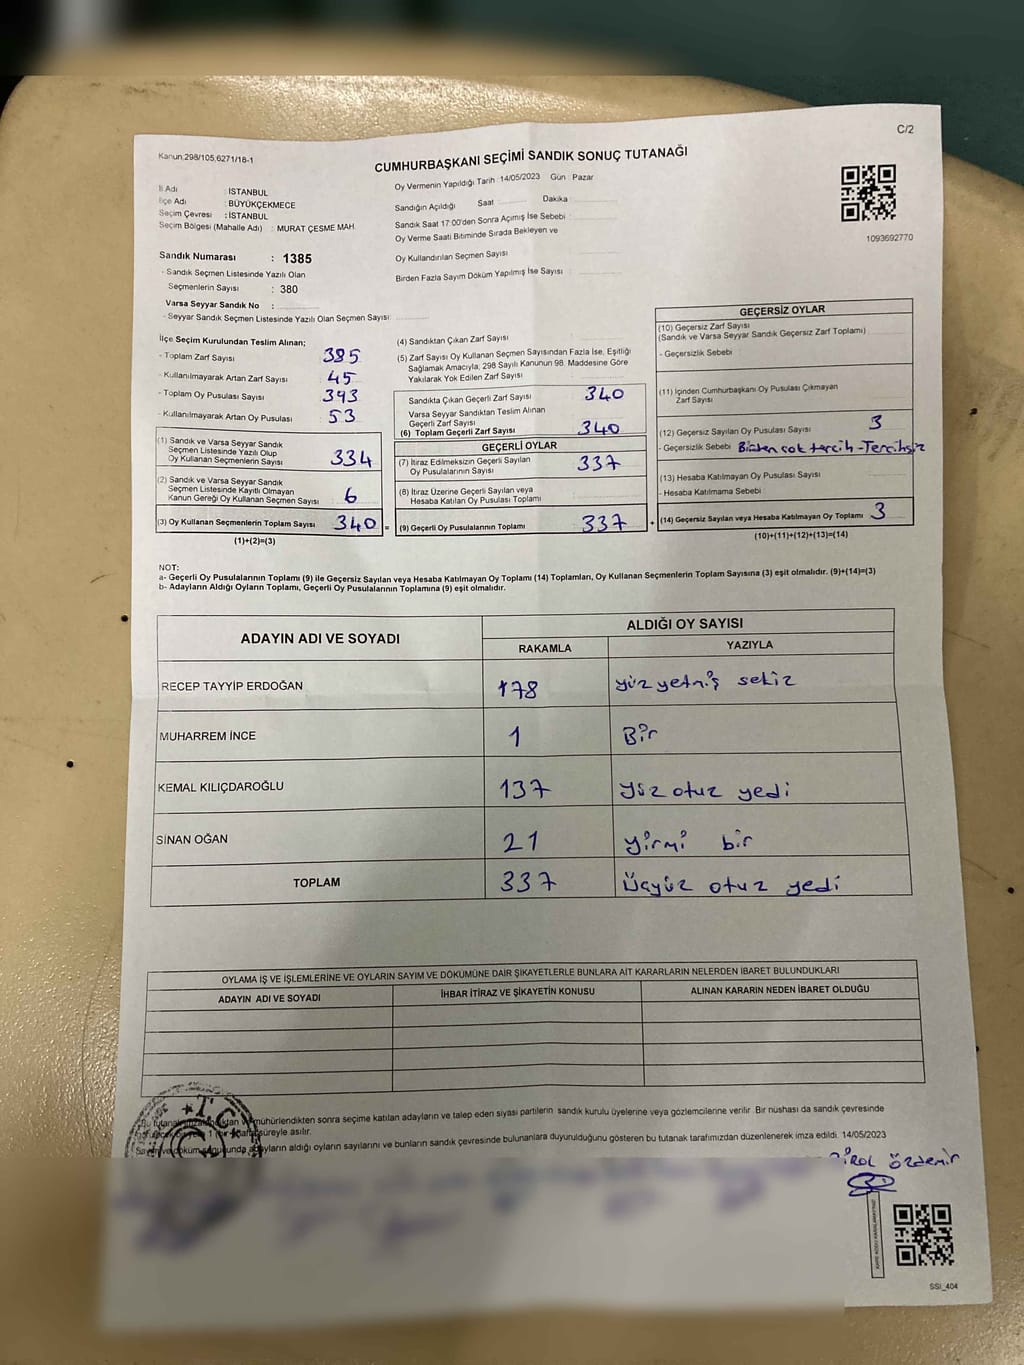 C/2
Kanun,298/105,6271/18-1
CUMHURBAŞKANI SEÇİMİ SANDIK SONUÇ TUTANAĞI
İl Adı : İSTANBUL
İlçe Adı : BÜYÜKÇEKMECE
Seçim Çevresi : İSTANBUL
Seçim Bölgesi (Mahalle Adı) : MURAT ÇESME MAH
Sandık Numarası : 1385
- Sandık Seçmen Listesinde Yazılı Olan
Seçmenlerin Sayısı : 380
Varsa Seyyar Sandık No :
- Seyyar Sandık Seçmen Listesinde Yazılı Olan Seçmen Sayısı:
Oy Vermenin Yapıldığı Tarih : 14/05/2023 Gün : Pazar
Sandığın Açıldığı Saat Dakika
Sandık Saat 17:00'den Sonra Açımış İse Sebebi :
Oy Verme Saati Bitiminde Sırada Bekleyen ve
Oy Kullandırılan Seçmen Sayısı
Birden Fazla Sayım Döküm Yapılmış İse Sayısı :
1093692770
İlçe Seçim Kurulundan Teslim Alınan;
- Toplam Zarf Sayısı 385
- Kullanılmayarak Artan Zarf Sayısı 45
- Toplam Oy Pusulası Sayısı 393
- Kullanılmayarak Artan Oy Pusulası 53
(1) Sandık ve Varsa Seyyar Sandık
Seçmen Listesinde Yazılı Olup
Oy Kullanan Seçmenlerin Sayısı 334
(2) Sandık ve Varsa Seyyar Sandık
Seçmen Listesinde Kayıtlı Olmayan
Kanun Gereği Oy Kullanan Seçmen Sayısı 6
(3) Oy Kullanan Seçmenlerin Toplam Sayısı 340 =
(1)+(2)=(3)
(4) Sandıktan Çıkan Zarf Sayısı
(5) Zarf Sayısı Oy Kullanan Seçmen Sayısından Fazla İse, Eşitliği
Sağlamak Amacıyla, 298 Sayılı Kanunun 98. Maddesine Göre
Yakılarak Yok Edilen Zarf Sayısı
Sandıkta Çıkan Geçerli Zarf Sayısı 340
Varsa Seyyar Sandıktan Teslim Alınan
Geçerli Zarf Sayısı
(6) Toplam Geçerli Zarf Sayısı 340
GEÇERLİ OYLAR
(7) İtiraz Edilmeksizin Geçerli Sayılan
Oy Pusulalarının Sayısı 337
(8) İtiraz Üzerine Geçerli Sayılan veya
Hesaba Katılan Oy Pusulası Toplamı
(9) Geçerli Oy Pusulalarının Toplamı 337 +
GEÇERSİZ OYLAR
(10) Geçersiz Zarf Sayısı
(Sandık ve Varsa Seyyar Sandık Geçersiz Zarf Toplamı)
- Geçersizlik Sebebi
(11) İçinden Cumhurbaşkanı Oy Pusulası Çıkmayan
Zarf Sayısı
(12) Geçersiz Sayılan Oy Pusulası Sayısı 3
- Geçersizlik Sebebi Birden çok tercih-Tercihsiz
(13) Hesaba Katılmayan Oy Pusulası Sayısı
- Hesaba Katılmama Sebebi
(14) Geçersiz Sayılan veya Hesaba Katılmayan Oy Toplamı 3
(10)+(11)+(12)+(13)=(14)
NOT:
a- Geçerli Oy Pusulalarının Toplamı (9) ile Geçersiz Sayılan veya Hesaba Katılmayan Oy Toplamı (14) Toplamları, Oy Kullanan Seçmenlerin Toplam Sayısına (3) eşit olmalıdır. (9)+(14)=(3)
b- Adayların Aldığı Oyların Toplamı, Geçerli Oy Pusulalarının Toplamına (9) eşit olmalıdır.
ADAYIN ADI VE SOYADI
ALDIĞI OY SAYISI
RAKAMLA YAZIYLA
RECEP TAYYİP ERDOĞAN 178 yüz yetmiş sekiz
MUHARREM İNCE 1 Bir
KEMAL KILIÇDAROĞLU 137 yüz otuz yedi
SİNAN OĞAN 21 yirmi bir
TOPLAM 337 Üçyüz otuz yedi
OYLAMA İŞ VE İŞLEMLERİNE VE OYLARIN SAYIM VE DÖKÜMÜNE DAİR ŞİKAYETLERLE BUNLARA AİT KARARLARIN NELERDEN İBARET BULUNDUKLARI
ADAYIN ADI VE SOYADI İHBAR İTİRAZ VE ŞİKAYETİN KONUSU ALINAN KARARIN NEDEN İBARET OLDUĞU
T.C.
Bu tutanak mühürlendikten sonra seçime katılan adayların ve talep eden siyasi partilerin sandık kurulu üyelerine veya gözlemcilerine verilir. Bir nüshası da sandık çevresinde
süreyle asılır.
adayların aldığı oyların sayılarını ve bunların sandık çevresinde bulunanlara duyurulduğunu gösteren bu tutanak tarafımızdan düzenlenerek imza edildi. 14/05/2023
Birol Özdemir
SSI_404